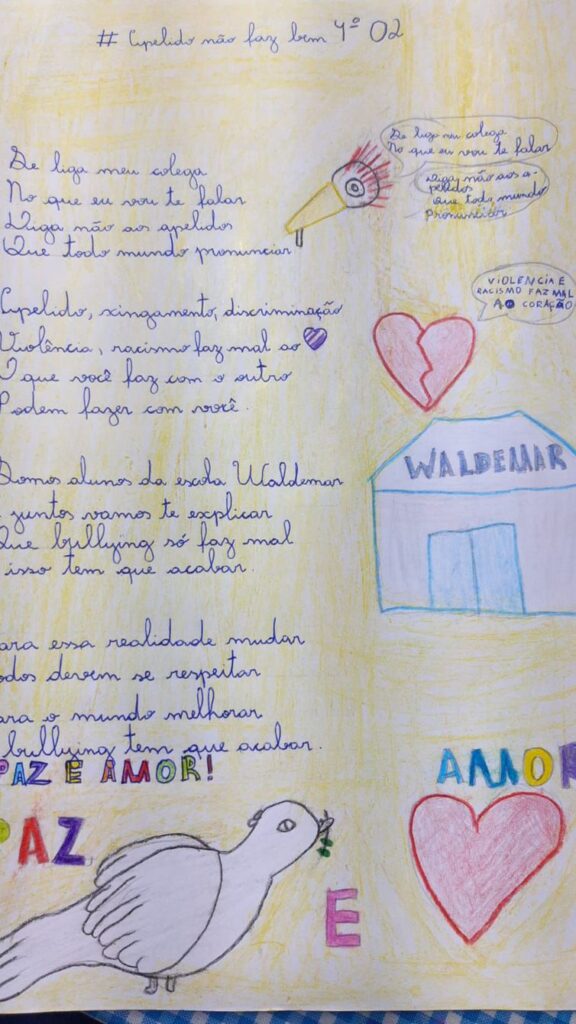 # Apelido não faz bem 4º 02
Se liga meu colega
No que eu vou te falar
Diga não aos apelidos
Que todo mundo pronunciar
Se liga meu colega
No que eu vou te falar
Diga não aos a-
pelidos
Que todo mundo
pronunciar
Apelido, xingamento, discriminação
Violência, racismo faz mal ao
O que você faz com o outro
Podem fazer com você.
VIOLENCIA E
RACISMO FAZ MAL
AO CORAÇÃO
Somos alunos da escola Waldemar
juntos vamos te explicar
Que bullying só faz mal
isso tem que acabar.
WALDEMAR
Para essa realidade mudar
Todos devem se respeitar
Para o mundo melhorar
bullying tem que acabar.
PAZ E AMOR!
PAZ
E
AMOR